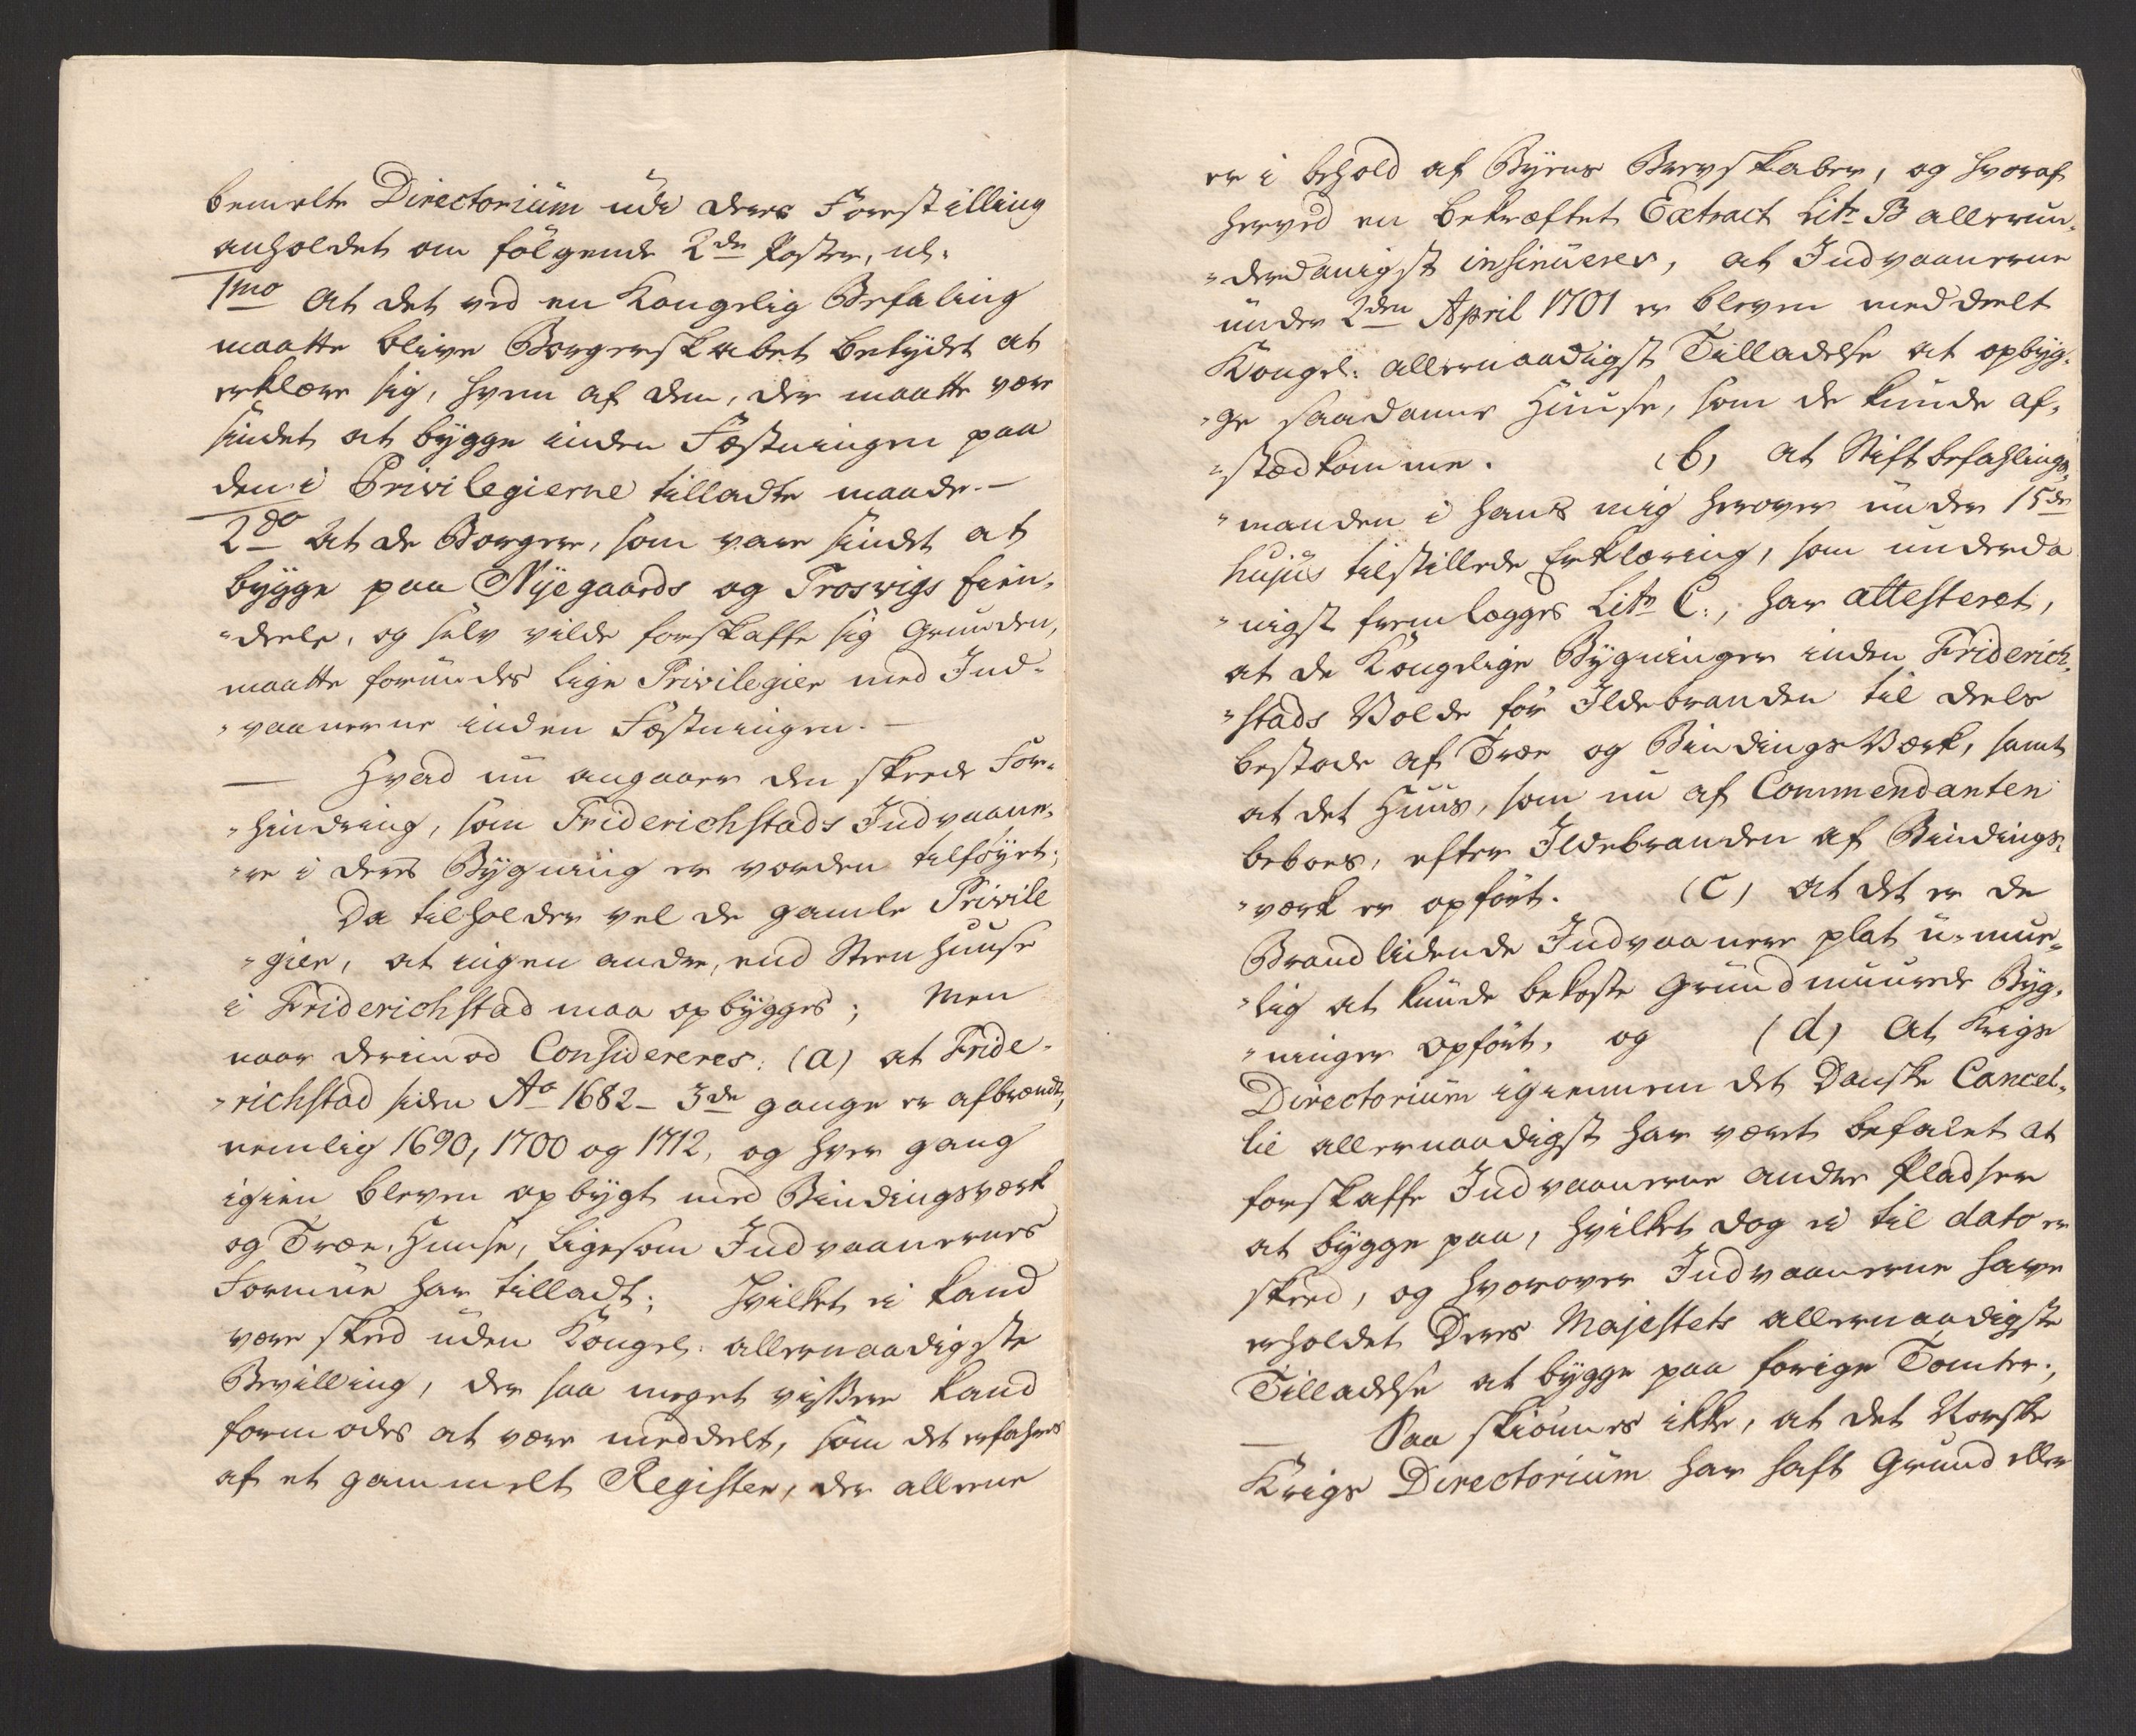 bemelte Directorium udi deres Forestilling
anholdet om følgende 2de Poster, nl.
1mo At det ved en Kongelig Befaling
maatte blive Borgerskabet betydet at
erklære sig, hvem af dem, der maatte være
sindet at bygge inden Fæstningen paa
den i Privilegierne tilladte maade. —
2do At de Borgere, som vare sindet at
bygge paa Nyegaards og Trosvigs Eien-
"deele, og selv vilde forskaffe sig Grunden,
maatte forundes lige Privilegier med Ind-
"vaanerne inden Fæstningen. —
— Hvad nu angaaer den skeede For-
"hindring, som Friderichstads Indvaane-
"re i deres Bygning er vorden tilføyet;
Da tilholder vel de gamle Privile
"gier, at ingen andre, end Steen Huuse
i Friderichstad maa opbygges; Men
naar derimod Considereres: (a) at Fride-
"richstad siden Ao 1682 – 3de gange er afbrændt,
nemlig 1690, 1700 og 1712, og hver gang
igien bleven opbygt med Bindingsværk
og Træe, Huuse, ligesom Indvaanernes
Formue har tilladt; Hvilket ei kand
være skeed uden Kongel: allernaadigste
Bevilling, der saa meget vissere kand
formodes at være meddeelt, som det erfahres
af et gammelt Register, der alleene
er i behold af Byens Brevskaber, og hvoraf
herved en bekræftet Extract Litr B allerun-
"derdanigst insinueres, at Indvaanerne
under 2den April 1701 er bleven meddeelt
Kongel: allernaadigst Tilladelse at opbyg-
"ge saadanne Huuse, som de kunde af-
"stædkomme. (b) at Stiftbefahlings-
"manden i hans mig herover under 15de
hujus tilstillede Erklæring, som underda
"nigst fremlægges Litr C:, har attesteret,
at de Kongelige Bygninger inden Friderich-
"stads Volde før Ildebranden til deels
bestode af Træe og BindingsVærk, samt
at det Huus, som nu af Commendanten
beboes, efter Ildebranden af Bindings-
"værk er opført. (c) at det er de
Brandlidende Indvaanere plat u-mue-
"lig at kunde bekoste Grundmuurede Byg-
"ninger opført, og (d) At Krigs
Directorium igiennem det Danske Cancel-
lie allernaadigst har været befalet at
forskaffe Indvaanerne andre Pladser
at bygge paa, hvilket dog ei til dato er
skeed, og hvorover Indvaanerne have
erholdet Deres Majestets allernaadigste
Tilladelse at bygge paa forige Tomter;
— Saa skiønnes ikke, at det Norske
Krigs Directorium har haft Grund eller